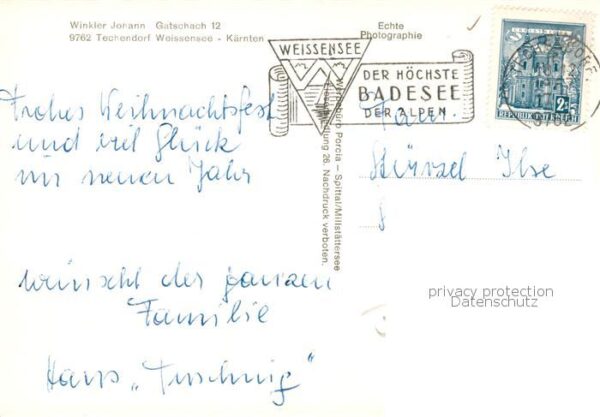 Winkler Johann Gatschach 12
9762 Techendorf Weissensee - Kärnten
Echte
Photographie
WEISSENSEE
DER HÖCHSTE
BADESEE
DER ALPEN
2.-
REPUBLIK ÖSTERREICH
Frohes Weihnachtsfest
und viel Glück
im neuen Jahr
wünscht der ganzen
Familie
Hans „
Porcia – Spittal/Millstättersee
26. Nachdruck verboten.
Fam.
Ilse
8
privacy protection
Datenschutz